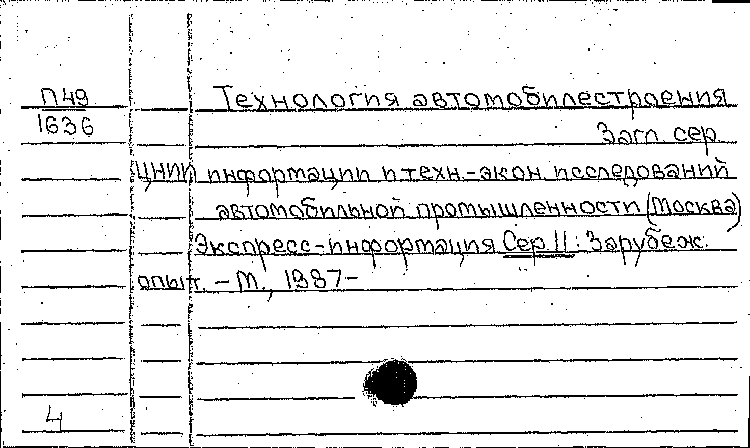 П49
1636
Технология автомобилестроения
Загл. сер.
ЦНИИ информации и техн.-экон. исследований
автомобильной промышленности (Москва)
Экспресс-информация Сер. II: Зарубеж.
опыт. - М., 1987-
4